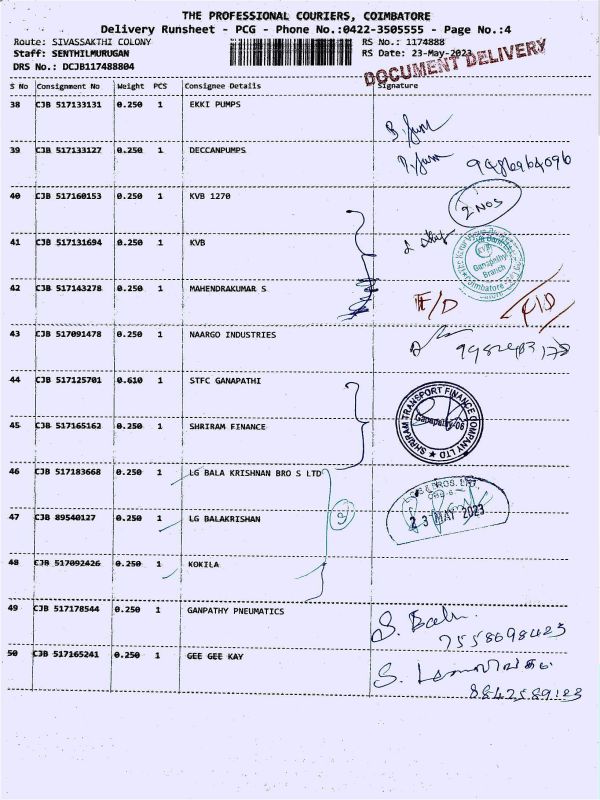 THE PROFESSIONAL COURIERS, COIMBATORE
Delivery Runsheet - PCG - Phone No.:0422-3505555 - Page No.:4
Route: SIVASSAKTHI COLONY RS No.: 1174888
Staff: SENTHILMURUGAN RS Date: 23-May-2023
DRS No.: DCJB117488804
DOCUMENT DELIVERY
S No Consignment No Weight PCS Consignee Details Signature
38 CJB 517133131 0.250 1 EKKI PUMPS
39 CJB 517133127 0.250 1 DECCANPUMPS
40 CJB 517160153 0.250 1 KVB 1270
2 NOS
41 CJB 517131694 0.250 1 KVB
KVB
Ganapathy
Branch
Coimbatore
42 CJB 517143278 0.250 1 MAHENDRAKUMAR S
43 CJB 517091478 0.250 1 NAARGO INDUSTRIES
44 CJB 517125701 0.610 1 STFC GANAPATHI
SHRIRAM TRANSPORT FINANCE COMPANY LTD
Ganapathy-06
45 CJB 517165162 0.250 1 SHRIRAM FINANCE
46 CJB 517183668 0.250 1 LG BALA KRISHNAN BRO S LTD
47 CJB 89540127 0.250 1 LG BALAKRISHAN
23 MAY 2023
48 CJB 517092426 0.250 1 KOKILA
49 CJB 517178544 0.250 1 GANPATHY PNEUMATICS
S. Balu
7558698423
50 CJB 517165241 0.250 1 GEE GEE KAY